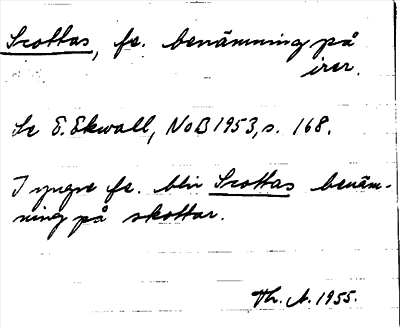 Scottas, fe. benämning på
irer.
Se E. Ekwall, NoB 1953, s. 168.
I yngre fe. blir Scottas benäm-
ning på skottar.
Th. A. 1955.